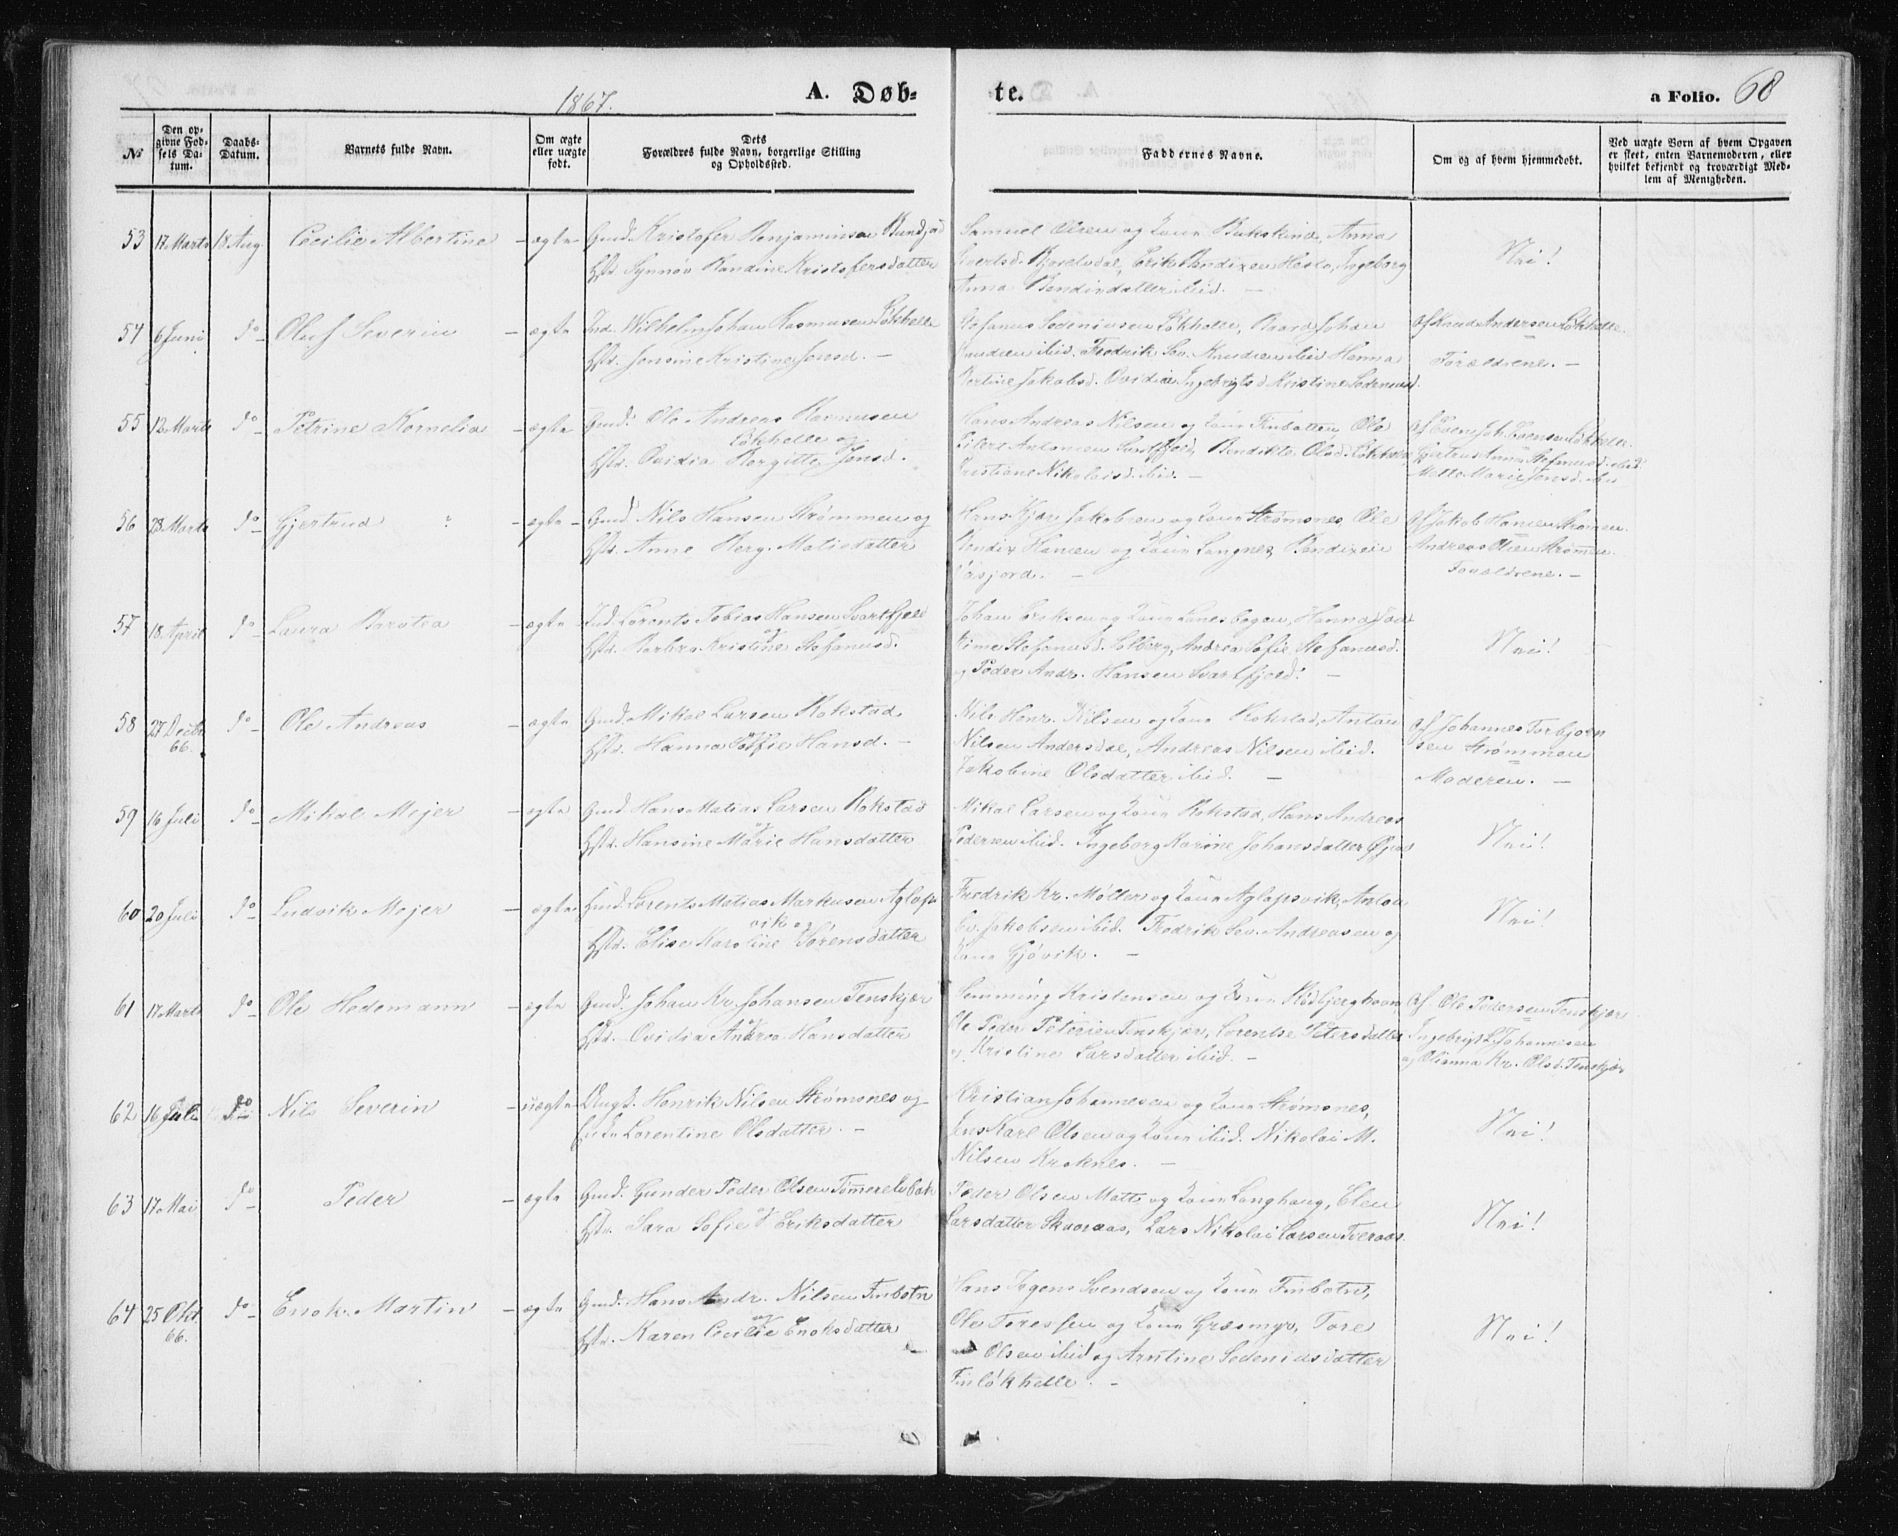 1867.
A. Døb-
te.
a Folio. 68
No
Den op-
givne Fød-
sels Da-
tum.
Daabs-
Datum.
Barnets fulde Navn.
Om ægte
eller uægte
født.
Dets
Forældres fulde Navn, borgerlige Stilling
og Opholdssted.
Faddernes Navne.
Om og af hvem hjemmedøbt.
Ved uægte Børn af hvem Opgaven
er skeet, enten Barnemoderen, eller
hvilket bekjendt og troværdigt Med-
lem af Menigheden.
53 17 Marts 18 Aug. Cecilie Albertine - ægte Gmd. Kristofer Benjaminsen
Hst. Synnøv Kristofersdatter
Samuel Olsen og Kone Anna
Erik Bendixen Ingeborg
Anna Bendixdatter ibid. -
Nei!
54 6 Juni do Oluf Severin - ægte Ind. Wilhelm Johan Rasmusen Løkhelle
Hst. Jensine Kristine Jensd. -
Stefanus Sedeniusen Løkhelle, Baard Johan
Knudsen ibid. Fredrik Sev. Knudsen ibid Hanna
Bertine Jakobsd. Ovidia Ingebrigtsd Kristine
Af Knud Andersen Løkhelle
Forældrene. -
55 12 Marts do Petrine Kornelia - ægte Gmd. Ole Andreas Rasmusen
Løkhelle og
Hst. Ovidia Bergitte Jensd.
Hans Andreas Nilsen og Kone Finbotten Ole
Bendikte Olsd. Løkhelle,
Kristiane Nikolaisd. ibid. -
Af Løkhelle
Anna Stefanusd. ibid
Mette Marie Jensd. ibid
56 28 Marts do Gjertrud - ægte - Gmd. Nils Hansen Strømmen og
Hst. Anne Berg. Matisdatter
Hans Kjær Jakobsen og Kone Strømsnes, Ole
Bendix Hansen og Kone Langnes, Bendixen
Af Jakob Hansen Strømen
Andreas Olsen Strømmen
Forældrene. -
57 18 April do Laura - ægte Ind. Lorents Tobias Hansen Svartfjeld
og
Hst. Barbra Kristine Stefanusd.
Johan Eriksen og Kone Hanna
Stefanusd. Solberg, Andrea Sofie Stefanusd.
og Peder Andr. Hansen Svartfjeld. -
Nei!
58 27 Decbr. 66. do Ole Andreas - ægte Gmd. Mikal Larsen Rokstad
og
Hst. Hanna Sofie Hansd. -
Nils Henr. Nilsen og Kone Rokstad, Anton
Nilsen Andersdal, Andreas Nilsen ibid.
Jakobine Olsdatter ibid. -
Af Johannes Torbjørn
sen Strømmen
Moderen. -
59 16 Juli do Mikal Mejer - ægte Gmd. Hans Matias Larsen Rokstad
og
Hst. Hansine Marie Hansdatter
Mikal Larsen og Kone Rokstad, Hans Andreas
Pedersen ibid. Ingeborg Karine Johansdatter
Nei!
60 20 Juli do Ludvik Mejer - ægte Hmd. Lorents Matias Markusen Aglaps
vik og
Hst. Elise Karoline Sørensdatter
Fredrik Kr. Møller og Kone Aglapsvik, Anton
Ev. Jakobsen ibid. Fredrik Sev. Andreasen og
Kone Gjøvik. -
Nei!
61 17 Marts do Ole Hedemann - ægte Gmd. Johan Kr. Johansen Tenskjær
og
Hst. Ovidia Andrea Hansdatter
Hemming Kristensen og Kone
Ole Peder Petersen Tenskjær, Lorentse Petersdatter
og Kristine Larsdatter ibid. -
Af Ole Pedersen Tenskjær
Ingebrigt Johannesen
og Olianna Kr. Olsd. Tenskjær
62 16 Juli do Nils Severin - uægte Ungk. Henrik Nilsen Strømsnes og
Enke Lorentine Olsdatter. -
Kristian Johannesen og Kone Strømsnes,
Jens Karl Olsen og Kone ibid. Nikolai M.
Nilsen Kroknes. -
Nei!
63 17 Mai do Peder - ægte Gmd. Gunder Peder Olsen Tømmerelvbak
og
Hst. Sara Sofie Eriksdatter
Peder Olsen Matt og Kone Langhaug, Elen
Larsdatter Skaaraas, Lars Nikolai Larsen Tveraas.
Nei!
64 25 Okt. 66. do Enok Martin - ægte Gmd. Hans Andr. Nilsen Finbotn
og
Hst. Karen Cecilie Enoksdatter
Hans Jørgen Svendsen og Kone Finbotn,
Ole Toressen og Kone Græsmyr, Tore
Olsen ibid og Arntine Sedeniusdatter
Finløkhelle. -
Nei!